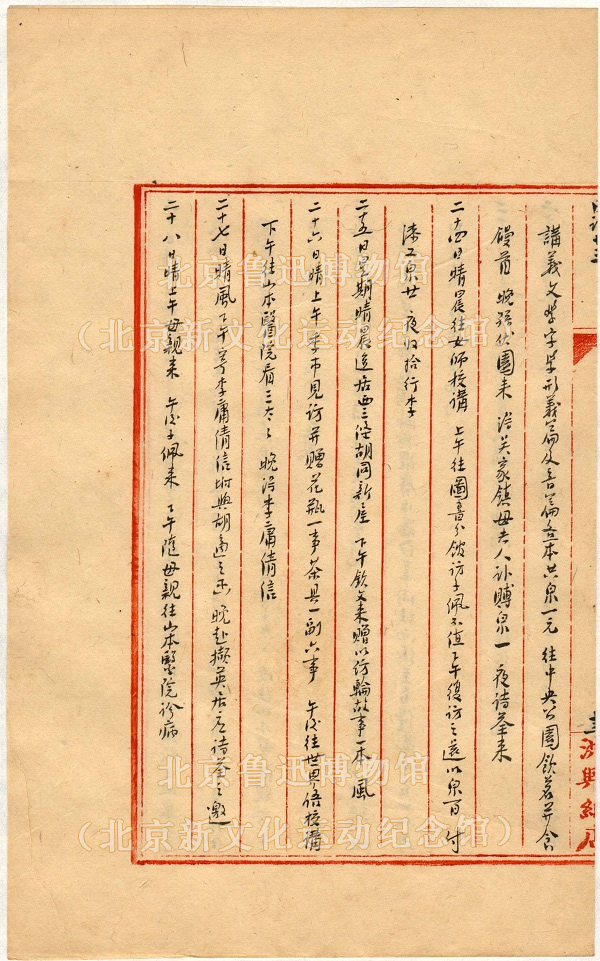 講義文學字學形義篇及音篇各本共泉一元 往中央公園飲茗并食
饅首 晚孫伏園來 為吳家鎮母夫人訃賻泉一 夜詩荃來
二十四日晴晨往女師校講 上午往圖書分館訪子佩不值下午復訪之還以泉百 付
漆工泉廿 夜收拾行李
二十五日星期晴晨迻居西三條胡同新屋 下午欽文來贈以仿輪故事一本 風
二十六日晴上午季市見訪并贈花瓶一事茶具一副六事 午後往世界語校講
下午往山本醫院看三太太 晚得李庸倩信
二十七日晴風下午寄李庸倩信附與胡適之函 晚赴擷英居應詩荃之邀
二十八日晴上午母親來 午後子佩來 下午隨母親往山本醫院診病
北京鲁迅博物馆
（北京新文化运动纪念馆）
北京鲁迅博物馆
（北京新文化运动纪念馆）